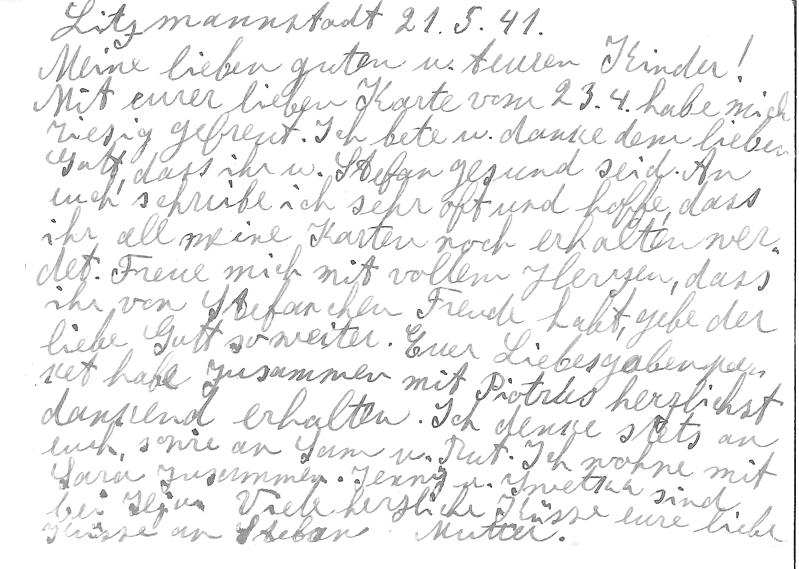 Litzmannstadt 21.5.41.
Meine lieben guten u. teuren Kinder!
Mit eurer lieben Karte vom 23.4. habe mich
riesig gefreut. Ich bete u. danke dem lieben
Gott, dass ihr u. Stefan gesund seid. An
euch schreibe ich sehr oft und hoffe, dass
ihr all meine Karten noch erhalten wer-
det. Freue mich mit vollem Herzen, dass
ihr von Stefanchen Freude habt, gebe der
liebe Gott so weiter. Euer Liebesgabenpa-
ket habe zusammen mit Piotrus herzlichst
dankend erhalten. Ich denke stets an
euch, sowie an Sam u. Rut. Ich wohne mit
Sara zusammen. Jenny u. Iwetka sind
bei Viele herzliche Küsse eure liebe
Küsse an Stefan Mutter.